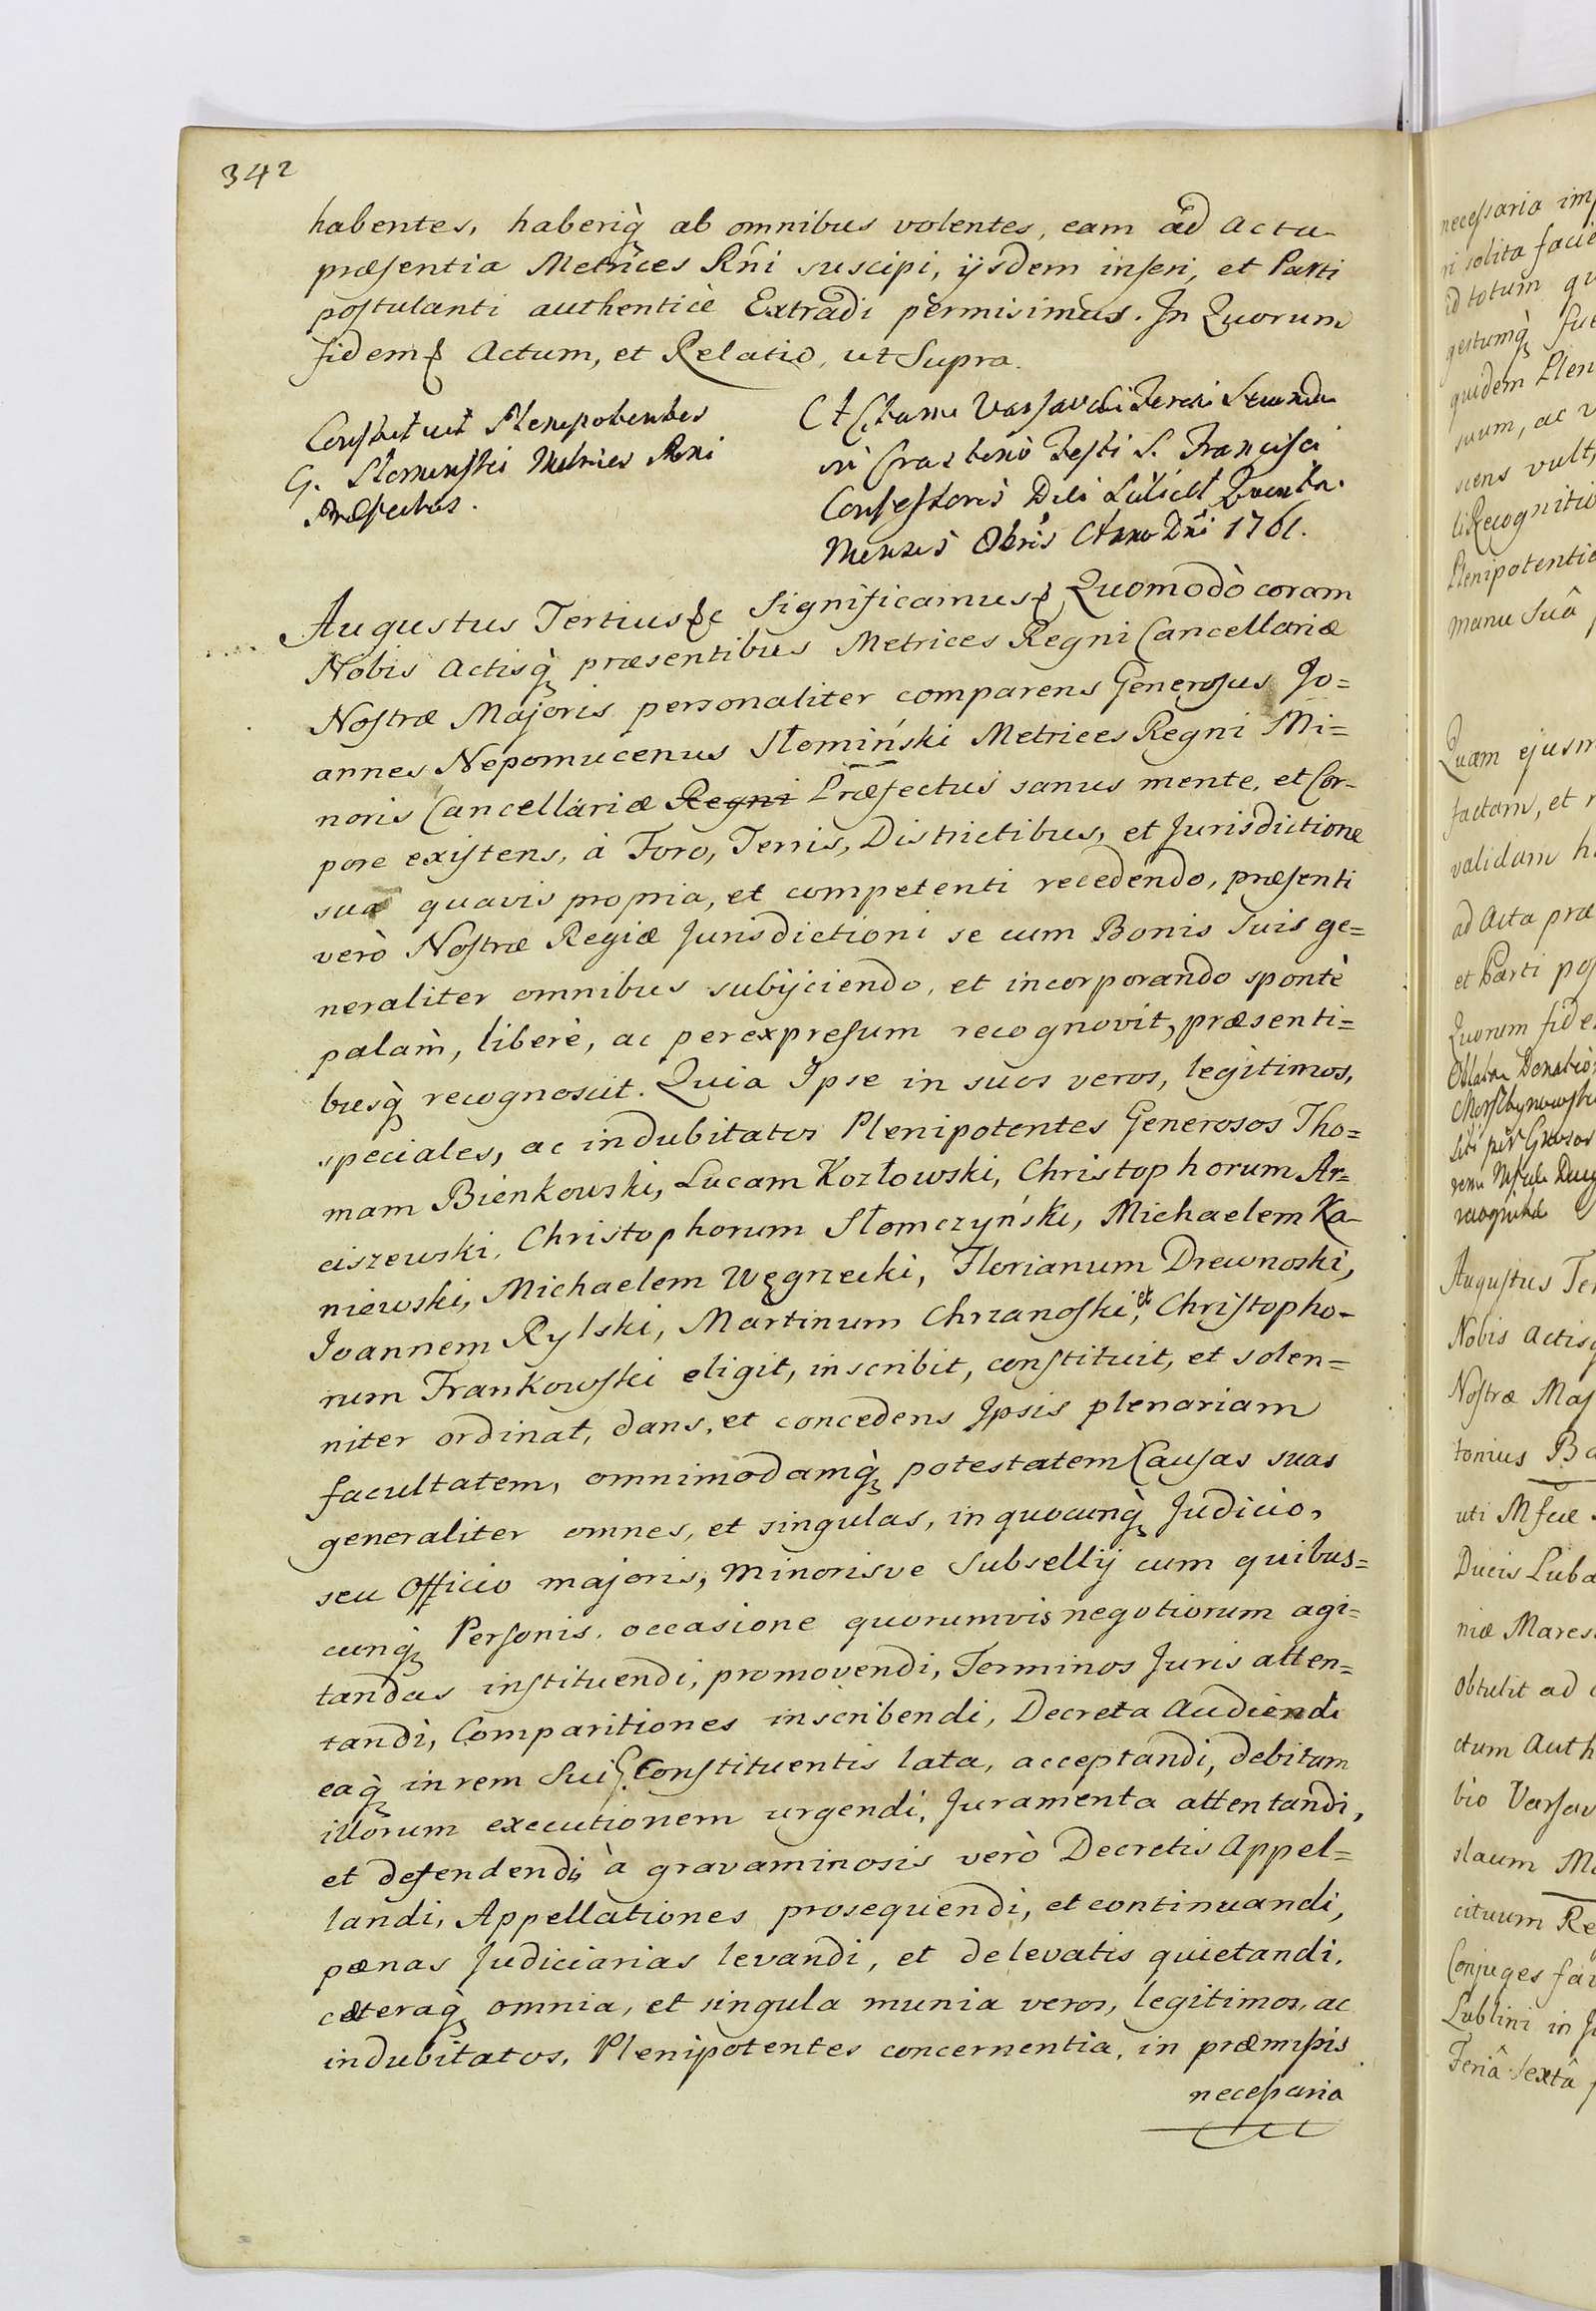 342
habentes, haberiq̀ ab omnibus volentes, eam ad Acta
præsentia Metrices Rñi suscipi, ijsdem inseri, et Parti
postulanti authenticè Extradi permisimus. In Quorum
fidem Actum, et Relatio, ut Supra.
Constituit Plenipotentes
G. Słominski Metrices Rni
Præfectus.
Actum Varsaviæ Feriâ Secundâ
in Crastinò Festi S. Francisci
Confessoris Diê Scilicèt Quintâ
Mensis Obrìs Anno Dni 1761.
Augustus Tertius &c Significamus Quomodò coram
Nobis Actisq̀ præsentibus Metrices Regni Cancellariæ
Nostræ Majoris personaliter comparens Generosus Jo=
annes Nepomucenus Słomiński Metrices Regni Mi=
noris Cancellariæ Regni Præfectus sanus mente, et Cor-
pore existens, à Foro, Terris, Districtibus, et Jurisdictione
sua quavis propria, et competenti recedendo, præsenti
verò Nostræ Regiæ Jurisdictioni se cum Bonis suis ge=
neraliter omnibus subijciendo, et incorporando spontè
palàm, liberè, ac per expressum recognovit, præsenti=
busq̀ recognoscit. Quia Ipse in suos veros, legitimos,
speciales, ac indubitatos Plenipotentes Generosos Tho=
mam Bienkowski, Lucam Kozłowski, Christophorum Ar=
ciszewski, Christophorum Słomczyński, Michaelem Ka-
niewski, Michaelem Węgrzecki, Florianum Drewnoski,
Joannem Rylski, Martinum Chrzanoski, et Christopho-
rum Frankowski eligit, inscribit, constituit, et solen=
niter ordinat, dans, et concedens Ipsis plenariam
facultatem, omnimodamq̀ potestatem Causas suas
generaliter omnes, et singulas, in quocunq̀ Judicio,
seu Officio majoris, minorisve Subsellij cum quibus=
cunq̀ Personis, occasione quorumvis negotiorum agi=
tandas instituendi, promovendi, Terminos Juris atten=
tandi, Comparitiones inscribendi, Decreta Audiendi
eaq̀ in rem Sui Constituentis lata, acceptandi, debitam
illorum executionem urgendi, Juramenta attentandi,
et defendendi, à gravaminosis verò Decretis Appel=
landi, Appellationes prosequendi, et continuandi,
pœnas Judiciarias levandi, et de levatis quietandi,
cæteraq̀ omnia, et singula munia veros, legitimos, ac
indubitatos, Plenipotentes concernentia, in præmissis
necessaria
necessaria
ri solita
id totum
gestumq̀
quidem Plen
suum, ac
sciens vult,
Recognitio
Plenipotentie
manu Suâ
Quam ejusm
factam, et
validam
ad Acta præ
et Parti
Quorum
recognitæ
Augustus Ter
Nobis Actisq
Nostræ Maj
tonius
uti
Ducis Luba
niæ Mares
Obtulit ad
ctum Auth
Varsav
slaum
cituum
Conjuges
Lublini in
Feriâ Sextâ